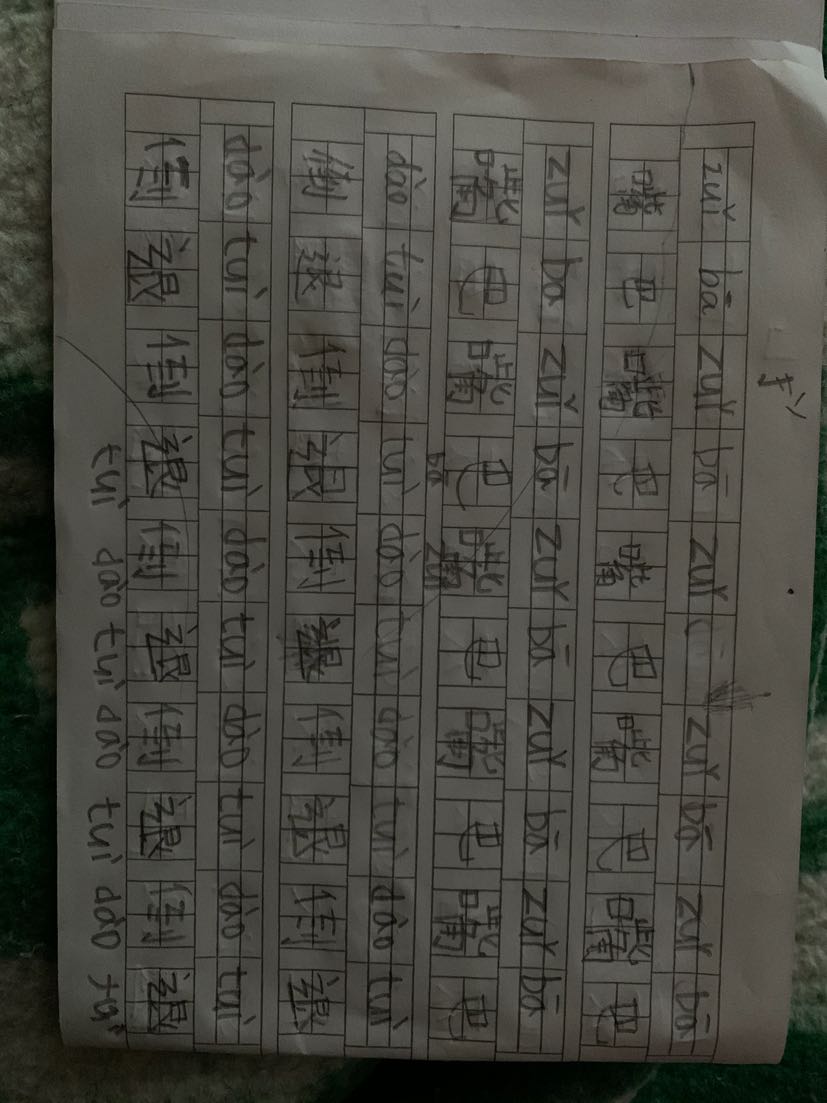 zuǐ bā zuǐ bā zuǐ zuǐ bā zuǐ bā
嘴 巴 嘴 巴 嘴 巴 嘴 巴 嘴 巴
zuǐ bā zuǐ bā zuǐ bā zuǐ bā zuǐ bā
嘴 巴 嘴 巴 嘴 巴 嘴 巴 嘴 巴
bā zuǐ
dào tuì dào tuì dào tuì dào tuì dào tuì
倒 退 倒 退 倒 退 倒 退 倒 退
dào tuì dào tuì dào tuì dào tuì dào tuì
倒 退 倒 退 倒 退 倒 退 倒 退
tuì dào tuì dào tuì dào tuì